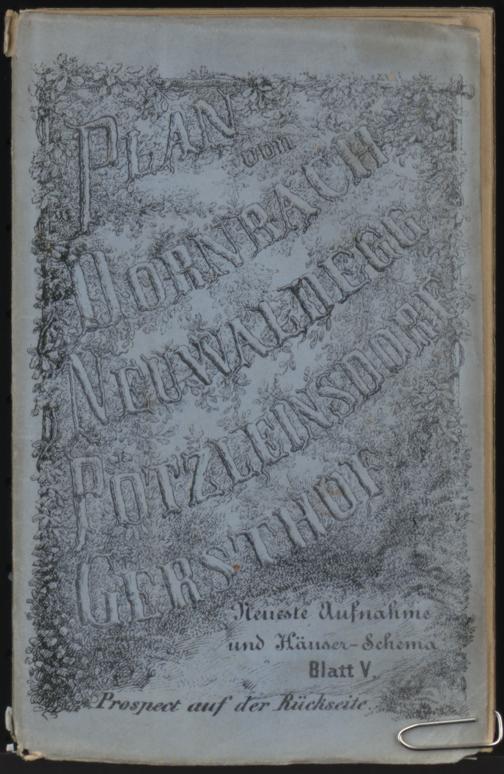 PLAN
vom
DORNBACH
NEUWALDEGG
PÖTZLEINSDORF
GERSTHOF
Neueste Aufnahme
und Häuser-Schema
Blatt V.
Prospect auf der Rückseite.